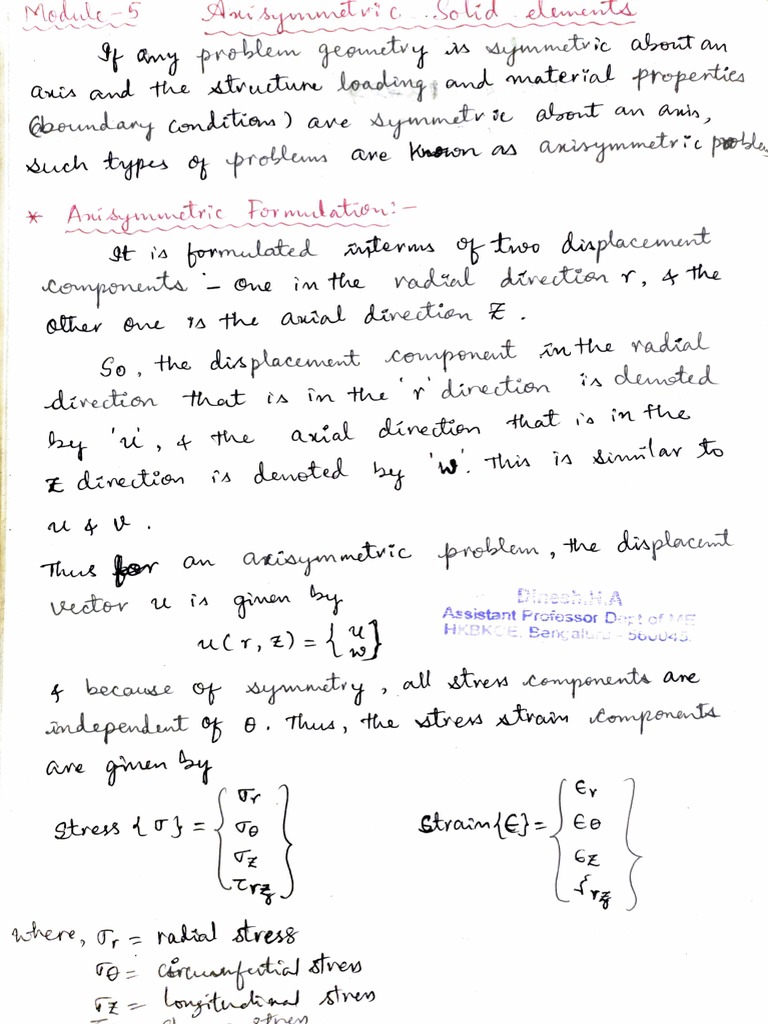 Module-5 Axisymmetric Solid elements
If any problem geometry is symmetric about an
axis and the structure loading and material properties
(boundary conditions) are symmetric about an axis,
such types of problems are known as axisymmetric proble
* Axisymmetric Formulation:-
It is formulated interms of two displacement
components - one in the radial direction r, & the
other one is the axial direction Z.
So, the displacement component in the radial
direction that is in the 'r' direction is denoted
by 'u', & the axial direction that is in the
Z direction is denoted by 'w'. This is similar to
u & v.
Thus for an axisymmetric problem, the displacemt
vector u is given by
Dinesh.H.A
Assistant Professor Dept of ME
HKBKCE, Bengaluru - 560045.
u(r, z) = {u w}
& because of symmetry, all stress components are
independent of θ. Thus, the stress strain components
are given by
Stress {σ} = {σr σθ σz τrz}
Strain {ϵ} = {ϵr ϵθ ϵz γrz}
where, σr = radial stress
σθ = circumfertial stress
σz = longitudional stress
stress